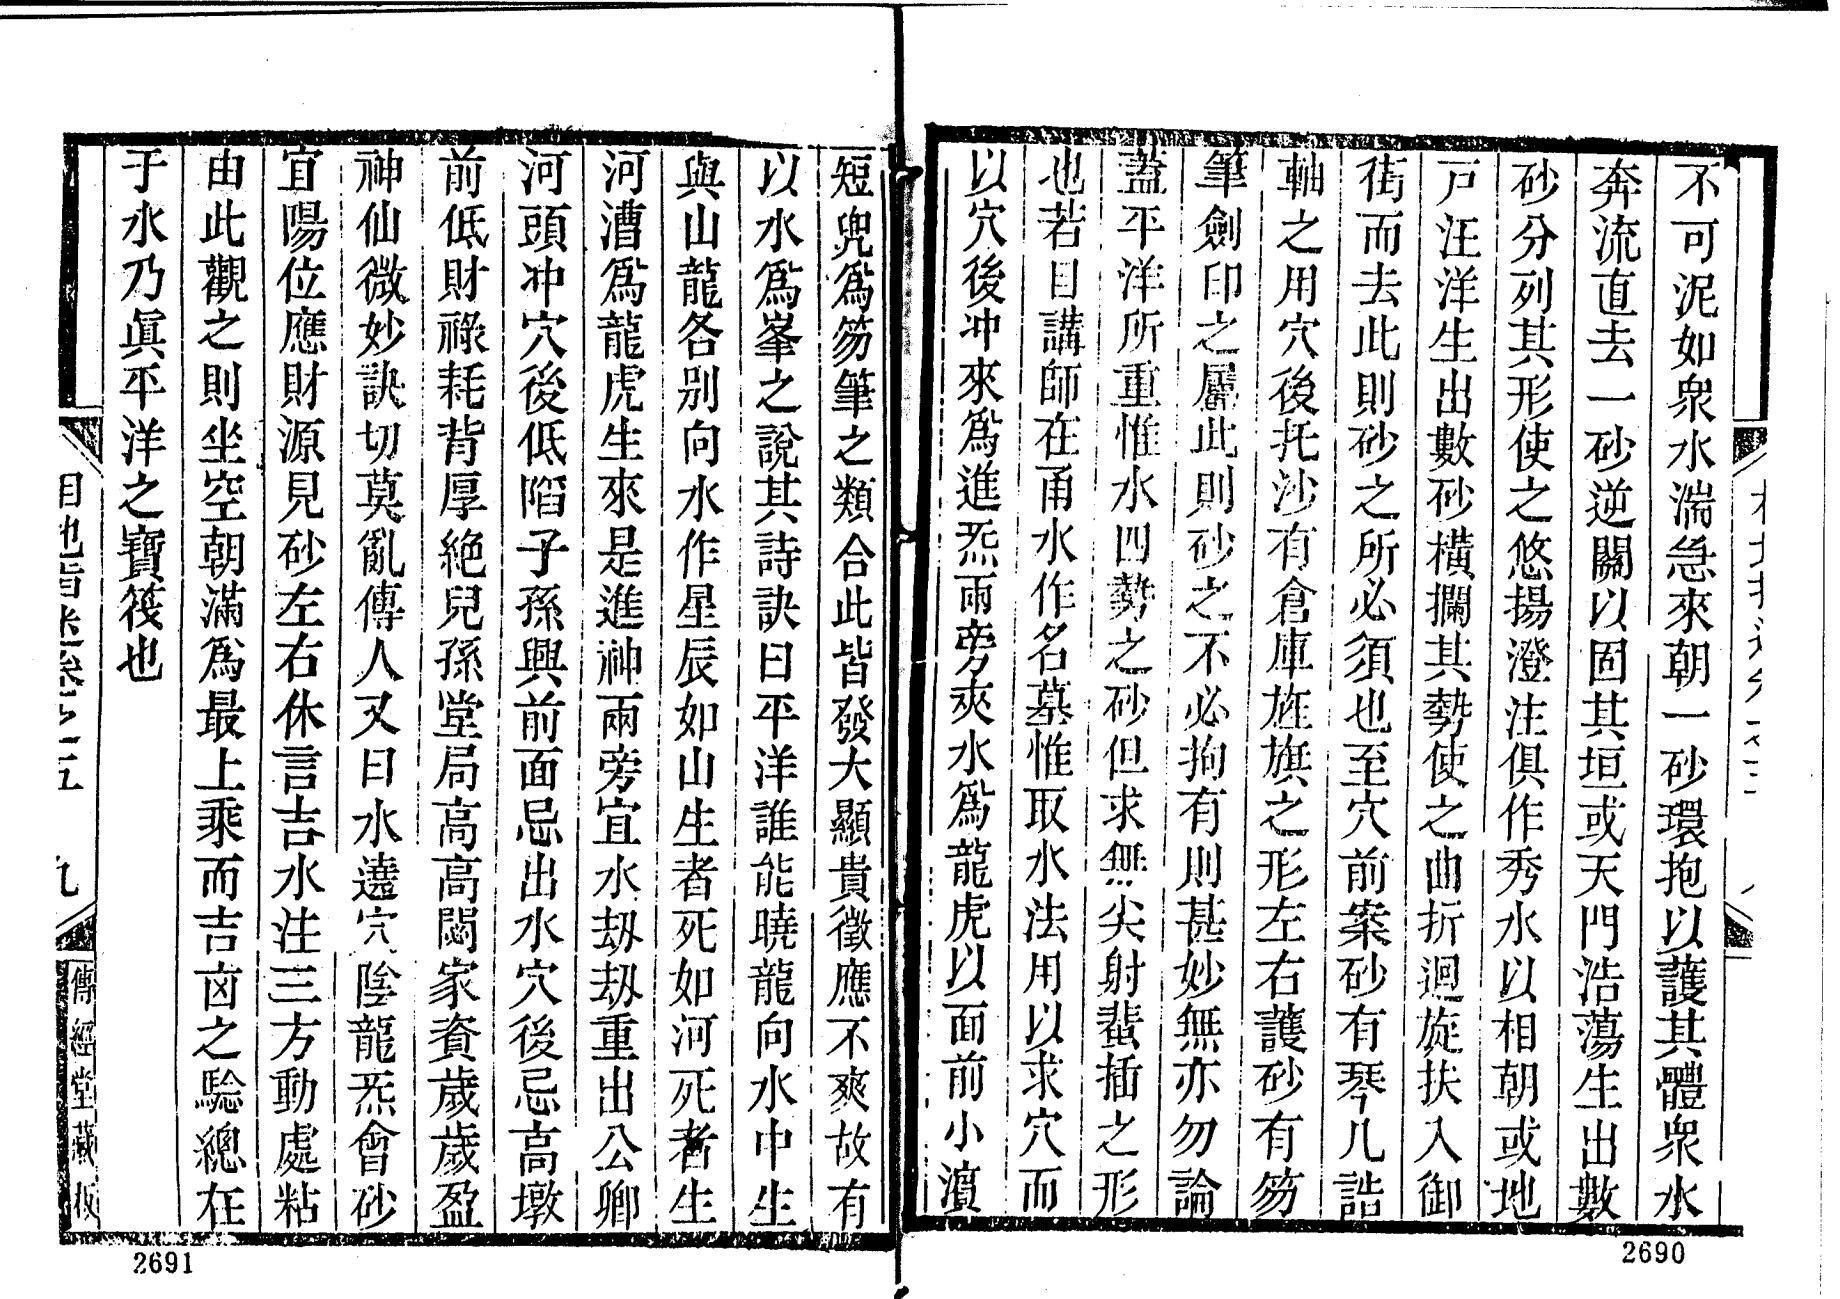 不可泥如衆水湍急來朝一砂環抱以護其體衆水
奔流直去一砂逆關以固其垣或天門浩蕩生出數
砂分列其形使之悠揚澄注俱作秀水以相朝或地
戸汪洋生出數砂橫攔其勢使之曲折迴旋扶入御
街而去此則砂之所必須也至穴前案砂有琴几誥
軸之用穴後托沙有倉庫旌旗之形左右護砂有笏
筆劍印之屬此則砂之不必拘有則甚妙無亦勿論
蓋平洋所重惟水四勢之砂但求無尖射蜚插之形
也若目講師在甬水作名墓惟取水法用以求穴而
以穴後冲來爲進炁兩旁夾水爲龍虎以面前小濵
短兜爲笏筆之類合此皆發大顯貴徵應不爽故有
以水爲峯之說其詩訣曰平洋誰能曉龍向水中生
與山龍各別向水作星辰如山生者死如河死者生
河漕爲龍虎生來是進神兩旁宜水刼刼重出公卿
河頭冲穴後低陷子孫興前面忌出水穴後忌高墩
前低財祿耗背厚絶兒孫堂局高高闊家資歲歲盈
神仙微妙訣切莫亂傳人又曰水遶穴陰龍炁會砂
宜陽位應財源見砂左右休言吉水注三方動處粘
由此觀之則坐空朝滿爲最上乘而吉凶之驗總在
于水乃眞平洋之寶筏也
相地指迷卷之五
九
傳經堂藏板
2691
2690